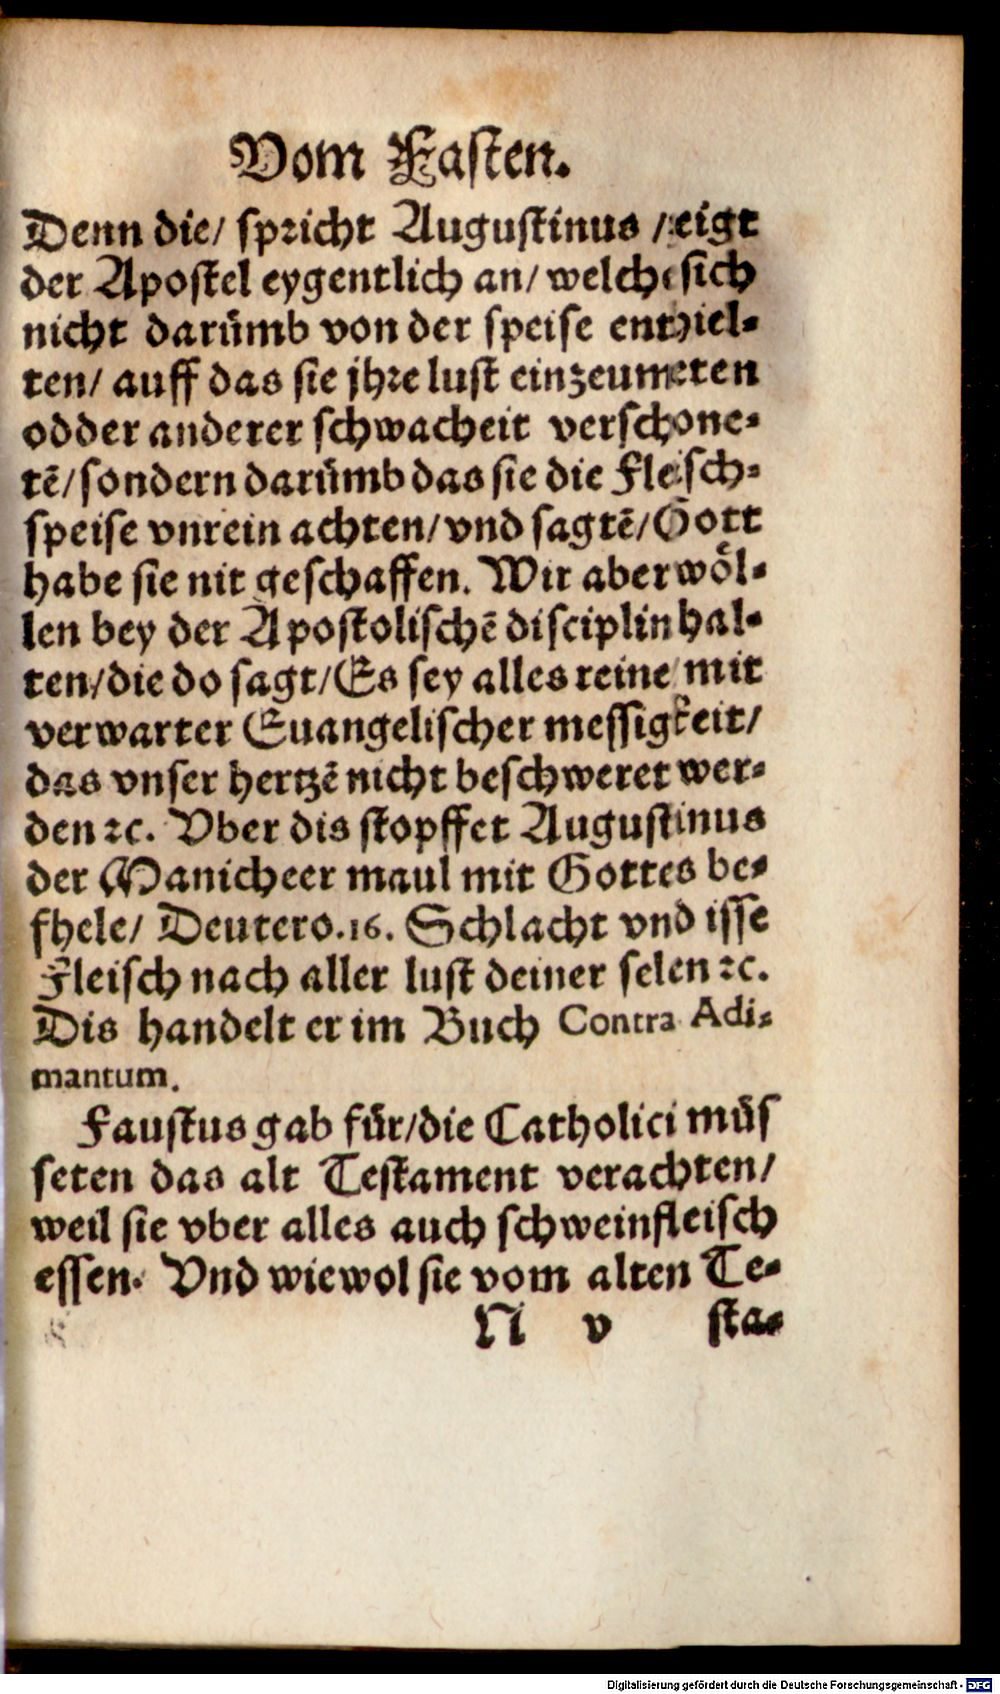 Vom Fasten.
Denn die/ spricht Augustinus / zeigt
der Apostel eygentlich an/ welche sich
nicht darümb von der speise enthiel-
ten/ auff das sie jhre lust einzeumeten
odder anderer schwacheit verschone-
tē/ sondern darümb das sie die Fleisch-
speise vnrein achten/ vnd sagtē/ Gott
habe sie nit geschaffen. Wir aber wöl-
len bey der Apostolischē disciplin hal-
ten/ die do sagt/ Es sey alles reine mit
verwarter Euangelischer messigkeit/
das vnser hertzē nicht beschweret wer-
den ⁊c. Vber dis stopffet Augustinus
der Manicheer maul mit Gottes be-
fhele/ Deutero.16. Schlacht vnd isse
Fleisch nach aller lust deiner selen ⁊c.
Dis handelt er im Buch Contra Adi-
mantum.
Faustus gab für/ die Catholici müs
seten das alt Testament verachten/
weil sie vber alles auch schweinfleisch
essen. Vnd wiewol sie vom alten Te-
N v sta-
Digitalisierung gefördert durch die Deutsche Forschungsgemeinschaft - DFG